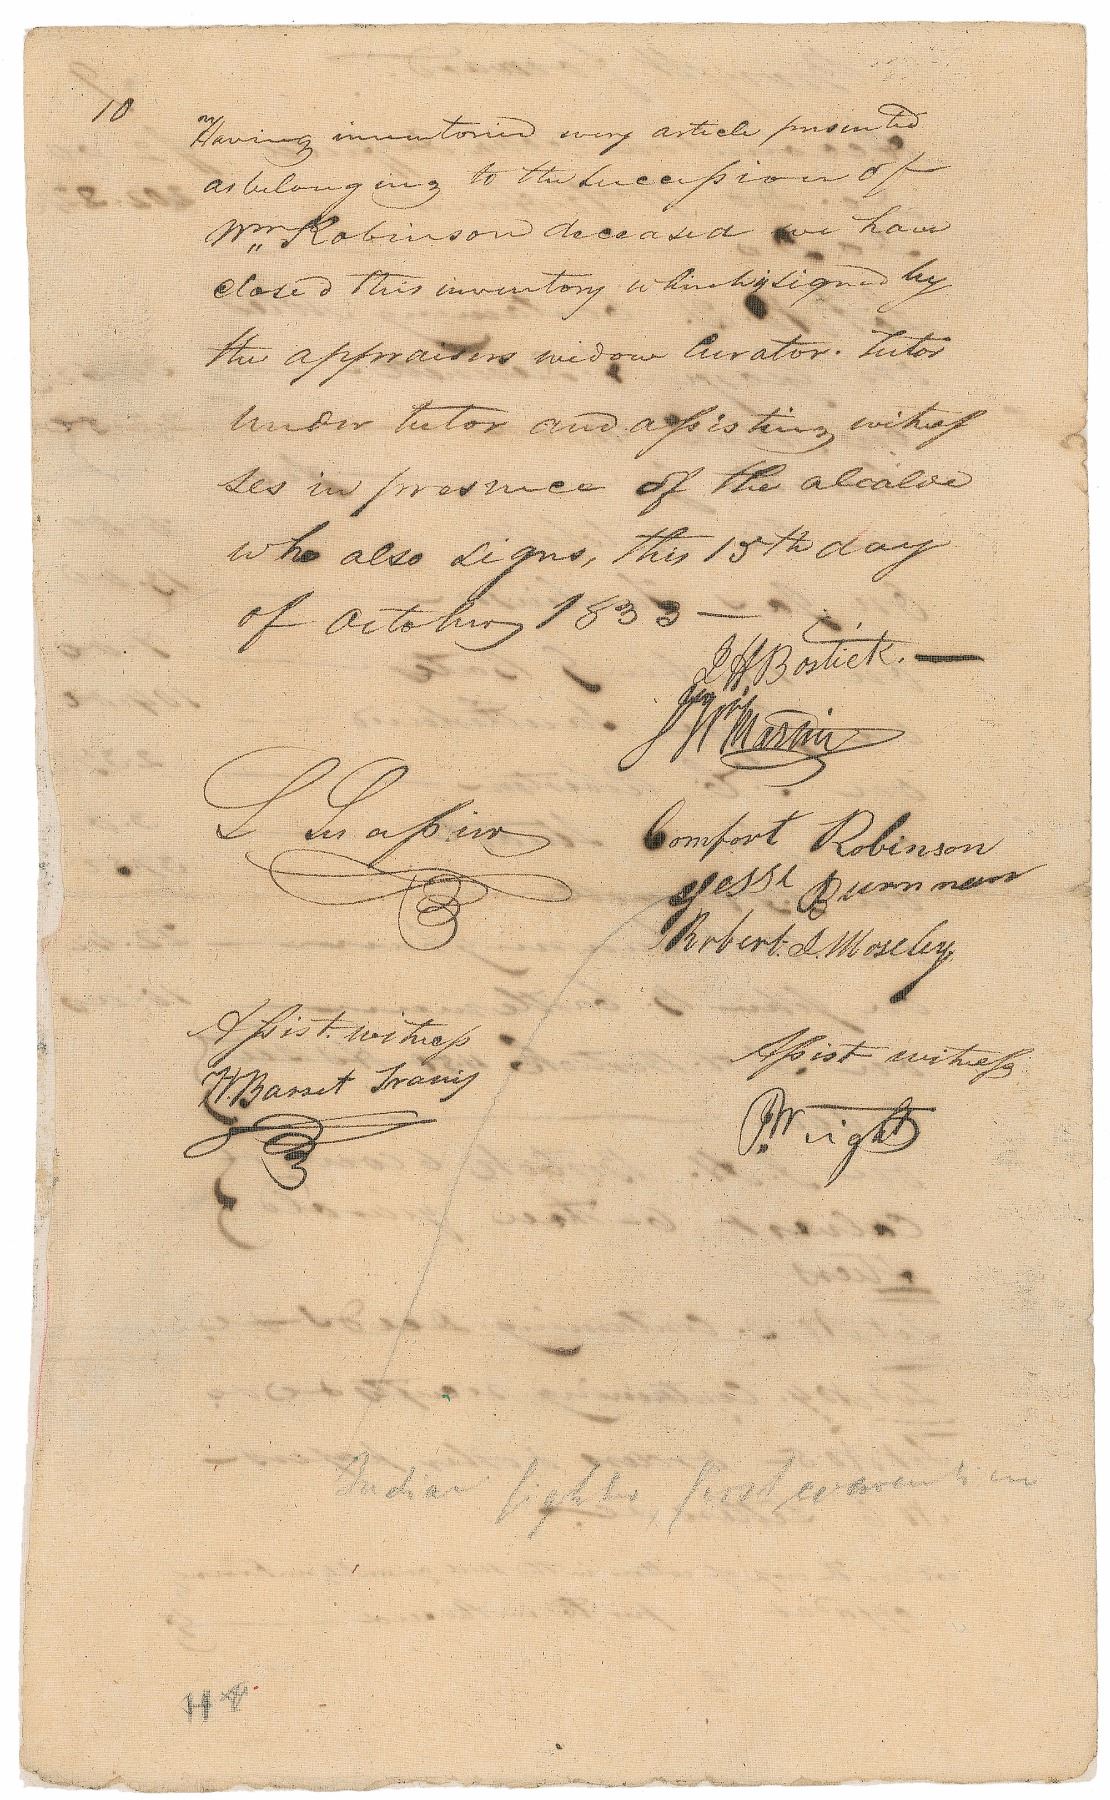 10
Having inventoried every article presented
as belonging to the Succession of
Wm Robinson deceased we have
closed this inventory which is signed by
the appraisers widow Curator. Tutor
under tutor and assisting witnes
ses in presence of the alcalde
who also signs, this 15th day
of October 1833 —
J H Bostick. —
Wm Martin
L Lesassier
Comfort Robinson
Jesse Burnam
Robert. J. Moseley
Assist. witness
W. Barret Travis
Assist witness
R. Wright
Indian fighter, first convention
H